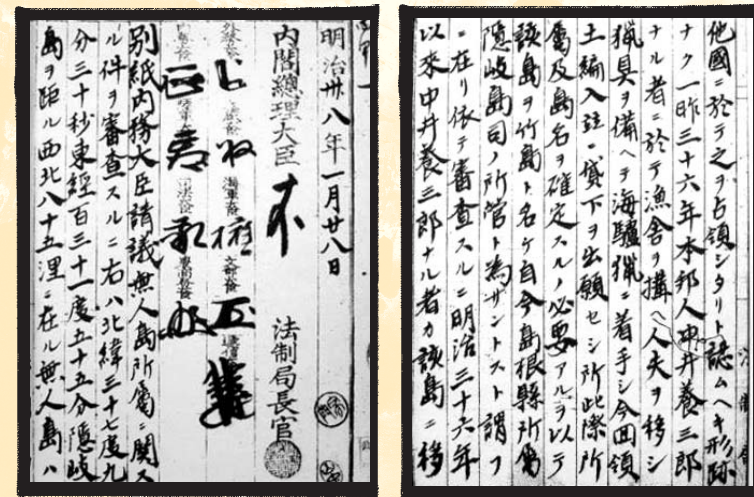 明治卅八年一月廿八日
内閣總理大臣
法制局長官
別紙内務大臣請議無人島所屬ニ關ス
ル件ヲ審査スルニ右ハ北緯三十七度九
分三十秒東經百三十一度五十五分隱岐
島ヲ距ル西北八十五浬ニ在ル無人島ハ
他國ニ於テ之ヲ占領シタリト認ムヘキ形跡
ナク一昨三十六年本邦人中井養三郎
ナル者ニ於テ漁舍ヲ構ヘ人夫ヲ移シ
獵具ヲ備ヘテ海驢獵ニ着手シ今回領
土編入竝ニ貸下ヲ出願セシ所此際所
屬及島名ヲ確定スルノ必要アルヲ以テ
該島ヲ竹島ト名ケ自今島根縣所屬
隱岐島司ノ所管ト為サントスト謂フ
ニ在リ依テ審査スルニ明治三十六年
以來中井養三郎ナル者カ該島ニ移